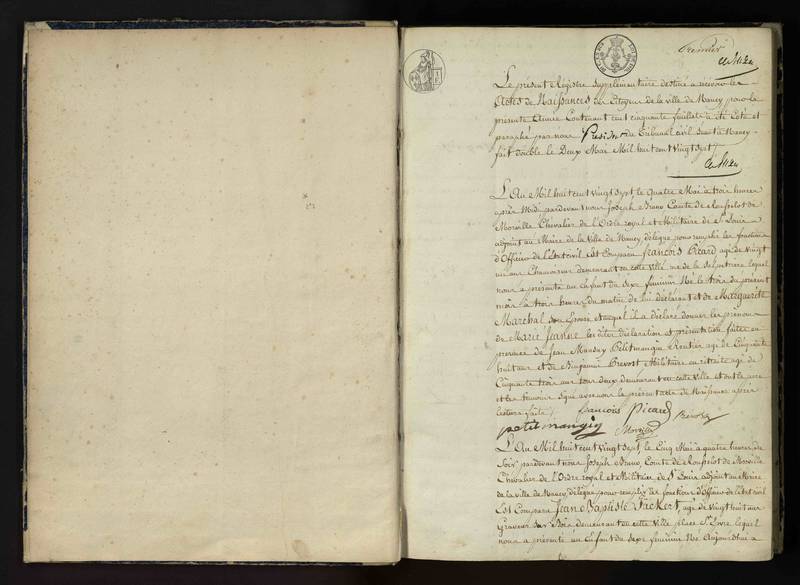 Premier
Le présent Régistre Supplémentaire destiné a recevoir les
Actes de Naissances des Citoyens de la ville de Nancy pour la
présente année Contenant cent cinquante feuillets a été Coté et
paraphé par nous Président du Tribunal civil séant à Nancy.
fait double le Deux Mai Mil huit cent vingt Sept
L'An Mil huit cent vingt Sept, le Quatre Mai à trois heures
après Midi pardevant nous Joseph Bruno Comte de
Morville Chevalier de l'Ordre royal et Militaire de St Louis
adjoint au Maire de la Ville de Nancy délégué pour remplir les fonctions
d'Officier de l'état civil Est Comparu François Picard agé de vingt
un ans demeurant en cette ville rue de la Salpetriere lequel
nous a présenté un Enfant du Sexe feminin Né le trois du présent
mois à trois heures du matin de lui déclarant et de Marguerite
Marchal Son Epouse et auquel il a déclaré donner les prénoms
de Marie Jeanne les dites Déclaration et présentation faites en
présence de Jean Petitmangin Rentier agé de Cinquante
huit ans et de Benjamin Prevost Militaire en retraite agé de
Cinquante trois ans tous deux demeurant en cette Ville et ont le pere
et les temoins Signé avec nous le présent acte de Naissance après
lecture faite François Picard Prevost
petitmangin Morville
L'An Mil huit cent vingt Sept, le Cinq Mai à quatre heures du
Soir, pardevant nous Joseph Bruno, Comte de Morville
Chevalier de l'Ordre royal et Militaire de St Louis adjoint au Maire
de la ville de Nancy délégué pour remplir les fonctions d'Officier de l'état civil
Est Comparu Jean Baptiste Fackert, agé de vingt huit ans
Graveur Sur Bois demeurant en cette Ville place St Epvre lequel
nous a présenté un Enfant du Sexe feminin Né Aujourd'hui a